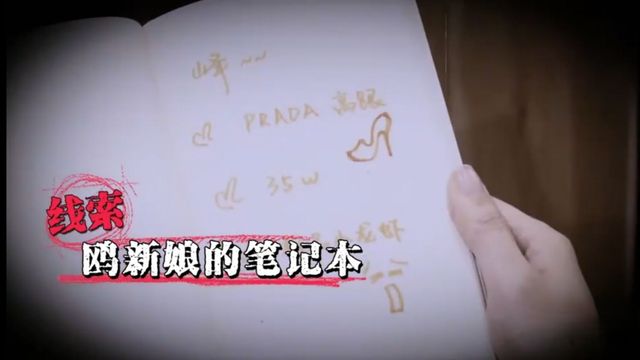 峰~~
PRADA 高跟
35W
小龙虾
线索
鸥新娘的笔记本